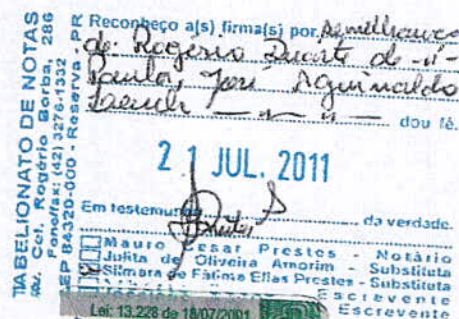 TABELIONATO DE NOTAS
Av. Cel. Rogério Borba, 286
Fone/fax: (42) 3276-1332
CEP 84320-000 - Reserva - PR
Reconheço a(s) firma(s) por semelhança
de: Rogerio Duarte de -ıı-
Paula, José Aguinaldo
— ıı — ıı — dou fé.
21 JUL. 2011
Em testemunho da verdade.
Mauro Cesar Prestes - Notário
Julita de Oliveira Amorim - Substituta
Silmara de Fátima Elias Prestes - Substituta
Escrevente
Escrevente
Lei: 13.228 de 18/07/2001